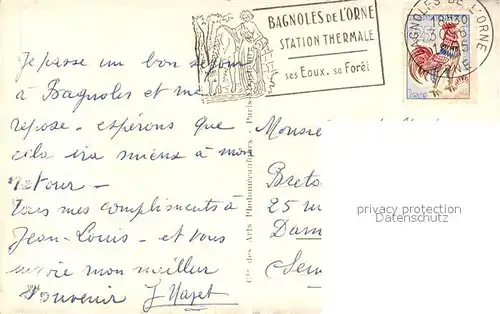 BAGNOLES de L'ORNE
STATION THERMALE
ses Eaux. sa Forêt
BAGNOLES DE L'ORNE
18H30
Je passe un bon séjour
à Bagnoles et me
repose - espérons que
cela ira mieux à mon
retour -
Tous mes compliments à
Jean-Louis - et vous
envoie mon meilleur
souvenir
Cie des Arts Photomécaniques - Paris
Monsieur
Breto
25 rue
Dam
Sein
privacy protection